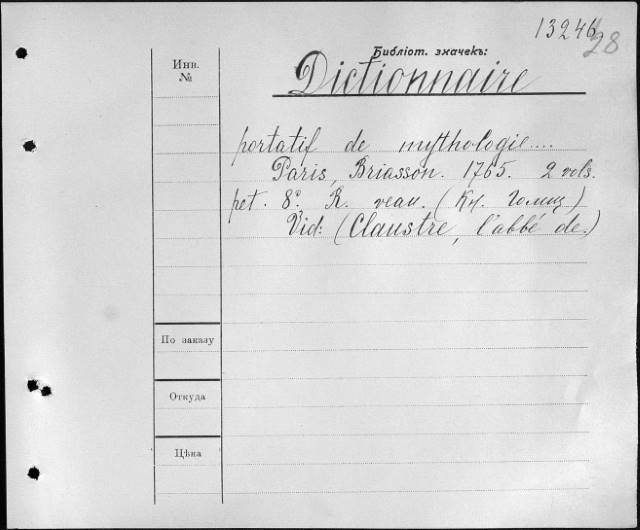 13246
28
Библіот. значекъ:
Инв.
№
Dictionnaire
portatif de mythologie....
Paris, Briasson. 1765. 2 vols.
pet. 8º. R. veau. (Кн. Голиц)
Vid: (Claustre, l'abbé de.)
По заказу
Откуда
Цѣна